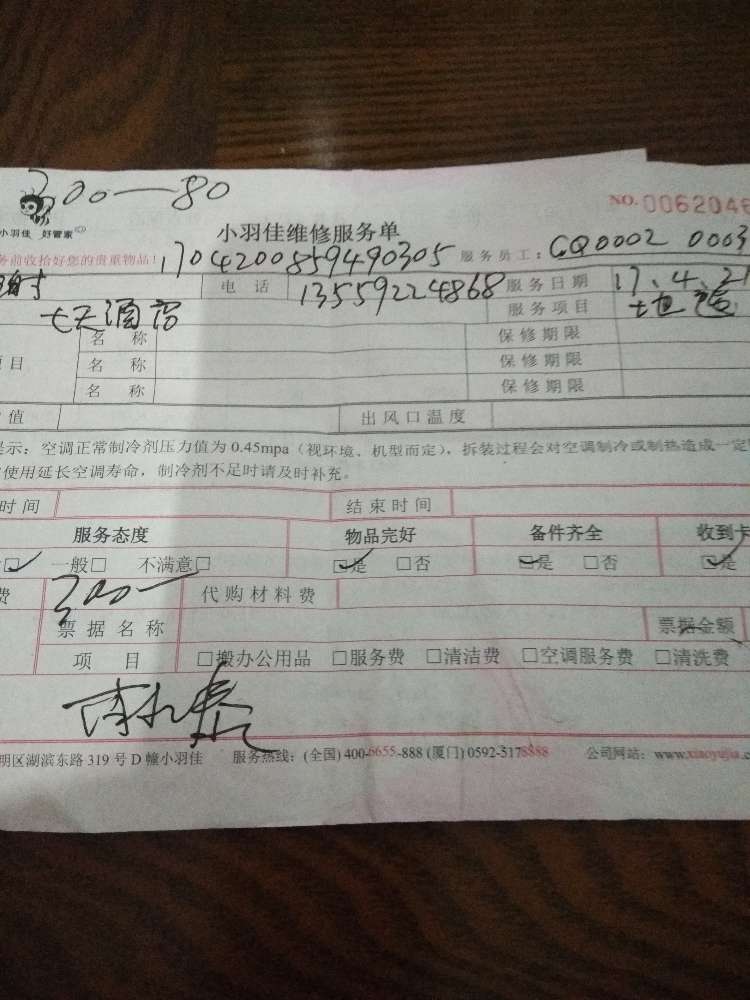 300—80
小羽佳 好管家
小羽佳维修服务单
NO.0062046
务前收拾好您的贵重物品! 1704200859490305 服务员工: CQ0002 0003
电 话 13559224868 服务日期 17.4.21
七天酒店 服务项目
名 称 保修期限
项目 名 称 保修期限
名 称 保修期限
值 出风口温度
提示: 空调正常制冷剂压力值为 0.45mpa (视环境、机型而定), 拆装过程会对空调制冷或制热造成一定
使用延长空调寿命, 制冷剂不足时请及时补充。
时间 结束时间
服务态度 物品完好 备件齐全 收到卡
□✓ 一般□ 不满意□ ☑是 □否 ☑是 □否 ☑是
费 300— 代购材料费
票据名称 票据金额
项 目 □搬办公用品 □服务费 □清洁费 □空调服务费 □清洗费
明区湖滨东路 319 号 D 幢小羽佳 服务热线: (全国) 400-6655-888 (厦门) 0592-5178888 公司网站: www.xiaoyujia.c